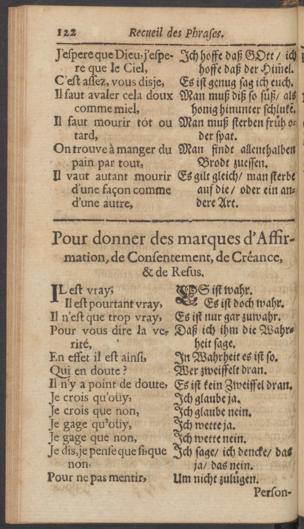 122 Recueil des Phrases.
J'espere que Dieu, j'espe- Ich hoffe daß GOtt / ich
re que le Ciel, hoffe daß der Himel.
C'est assez, vous disje, Es ist genug sag ich euch.
Il faut avaler cela doux Man muß diß so süß / als
comme miel, honig hinunter schlukē.
Il faut mourir tôt ou Man muß sterben früh o-
tard, der spat.
On trouve à manger du Man findt allenthalben
pain par tout, Brodt zuessen.
Il vaut autant mourir Es gilt gleich / man sterbe
d'une façon comme auf die / oder ein an-
d'une autre, dere Art.
Pour donner des marques d'Affir-
mation, de Consentement, de Créance,
& de Refus.
IL est vray, ES ist wahr.
Il est pourtant vray, Es ist doch wahr.
Il n'est que trop vray, Es ist nur gar zuwahr.
Pour vous dire la ve- Daß ich ihm die Wahr-
rité, heit sage.
En effet il est ainsi, In Wahrheit es ist so.
Qui en doute? Wer zweiffelt dran.
Il n'y a point de doute, Es ist kein Zweiffel dran.
Je crois qu'oüy, Ich glaube ja.
Je crois que non, Ich glaube nein.
Je gage qu'oüy, Ich wette ja.
Je gage que non, Ich wette nein.
Je dis, je pense que si, que Ich sage / ich dencke / das
non. ja / das nein.
Pour ne pas mentir, Um nicht zulügen.
Person-